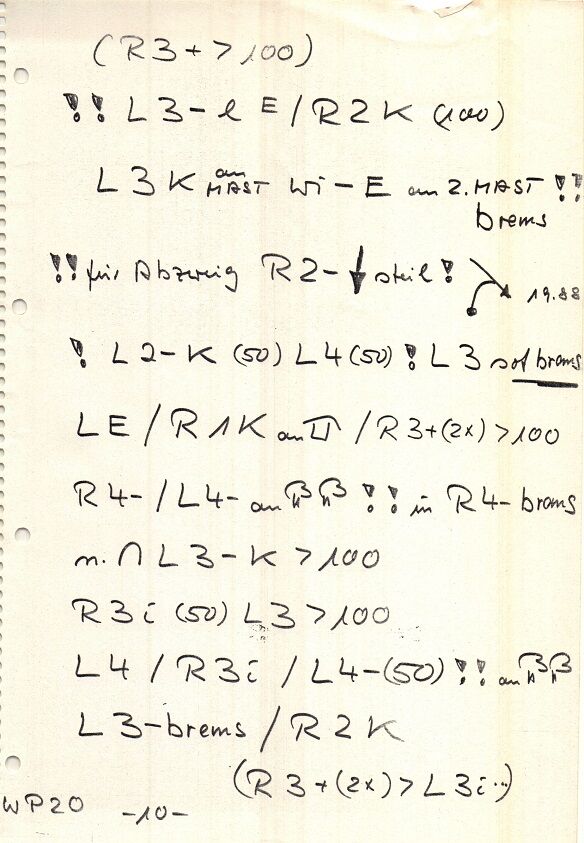 (R3+>100)
!! L3-l E/R2K (100)
L3K an MAST Wi-E an 2. MAST !!
brems
!! für Abzweig R2-↓ steil! 19.88
! L2-K (50) L4 (50) ! L3 sof brems
LE/R1K an /R3+(2x)>100
R4-/L4- an !! in R4-brems
n. ∩ L3-K>100
R3i (50) L3>100
L4/R3i/L4-(50) !! an
L3-brems/R2K
(R3+(2x)>L3i..)
WP20 -10-